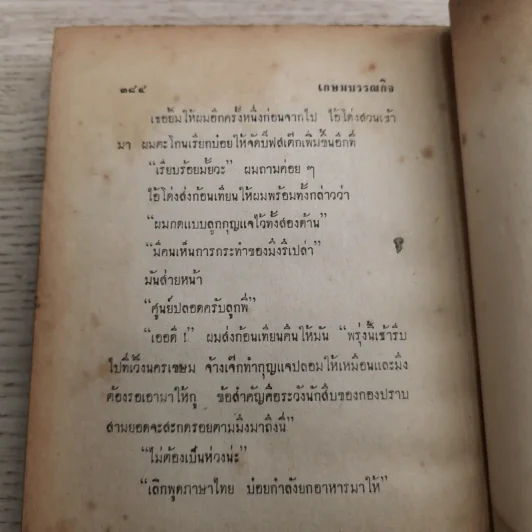 ๓๘๔ เกษมบรรณกิจ
เธอยิ้มให้ผมอีกครั้งหนึ่งก่อนจากไป ไอ้โด่งสวนเข้า
มา ผมตะโกนเรียกบ๋อยให้จัดบีฟสเต๊กเพิ่มขึ้นอีกที่
“เรียบร้อยมั้ยวะ” ผมถามค่อย ๆ
ไอ้โด่งส่งก้อนเทียนให้ผมพร้อมทั้งกล่าวว่า
“ผมกดแบบลูกกุญแจไว้ทั้งสองด้าน”
“มีคนเห็นการกระทำของมึงรึเปล่า”
มันส่ายหน้า
“ศูนย์ปลอดครับลูกพี่”
“เออดี !” ผมส่งก้อนเทียนคืนให้มัน “พรุ่งนี้เช้ารีบ
ไปที่เวิ้งนครเขษม จ้างเจ๊กทำกุญแจปลอมให้เหมือนและมึง
ต้องรอเอามาให้กู ข้อสำคัญคือระวังนักสืบของกองปราบ
สามยอดจะสะกดรอยตามมึงมาถึงนี่”
“ไม่ต้องเป็นห่วงน่ะ”
“เลิกพูดภาษาไทย บ๋อยกำลังยกอาหารมาให้”